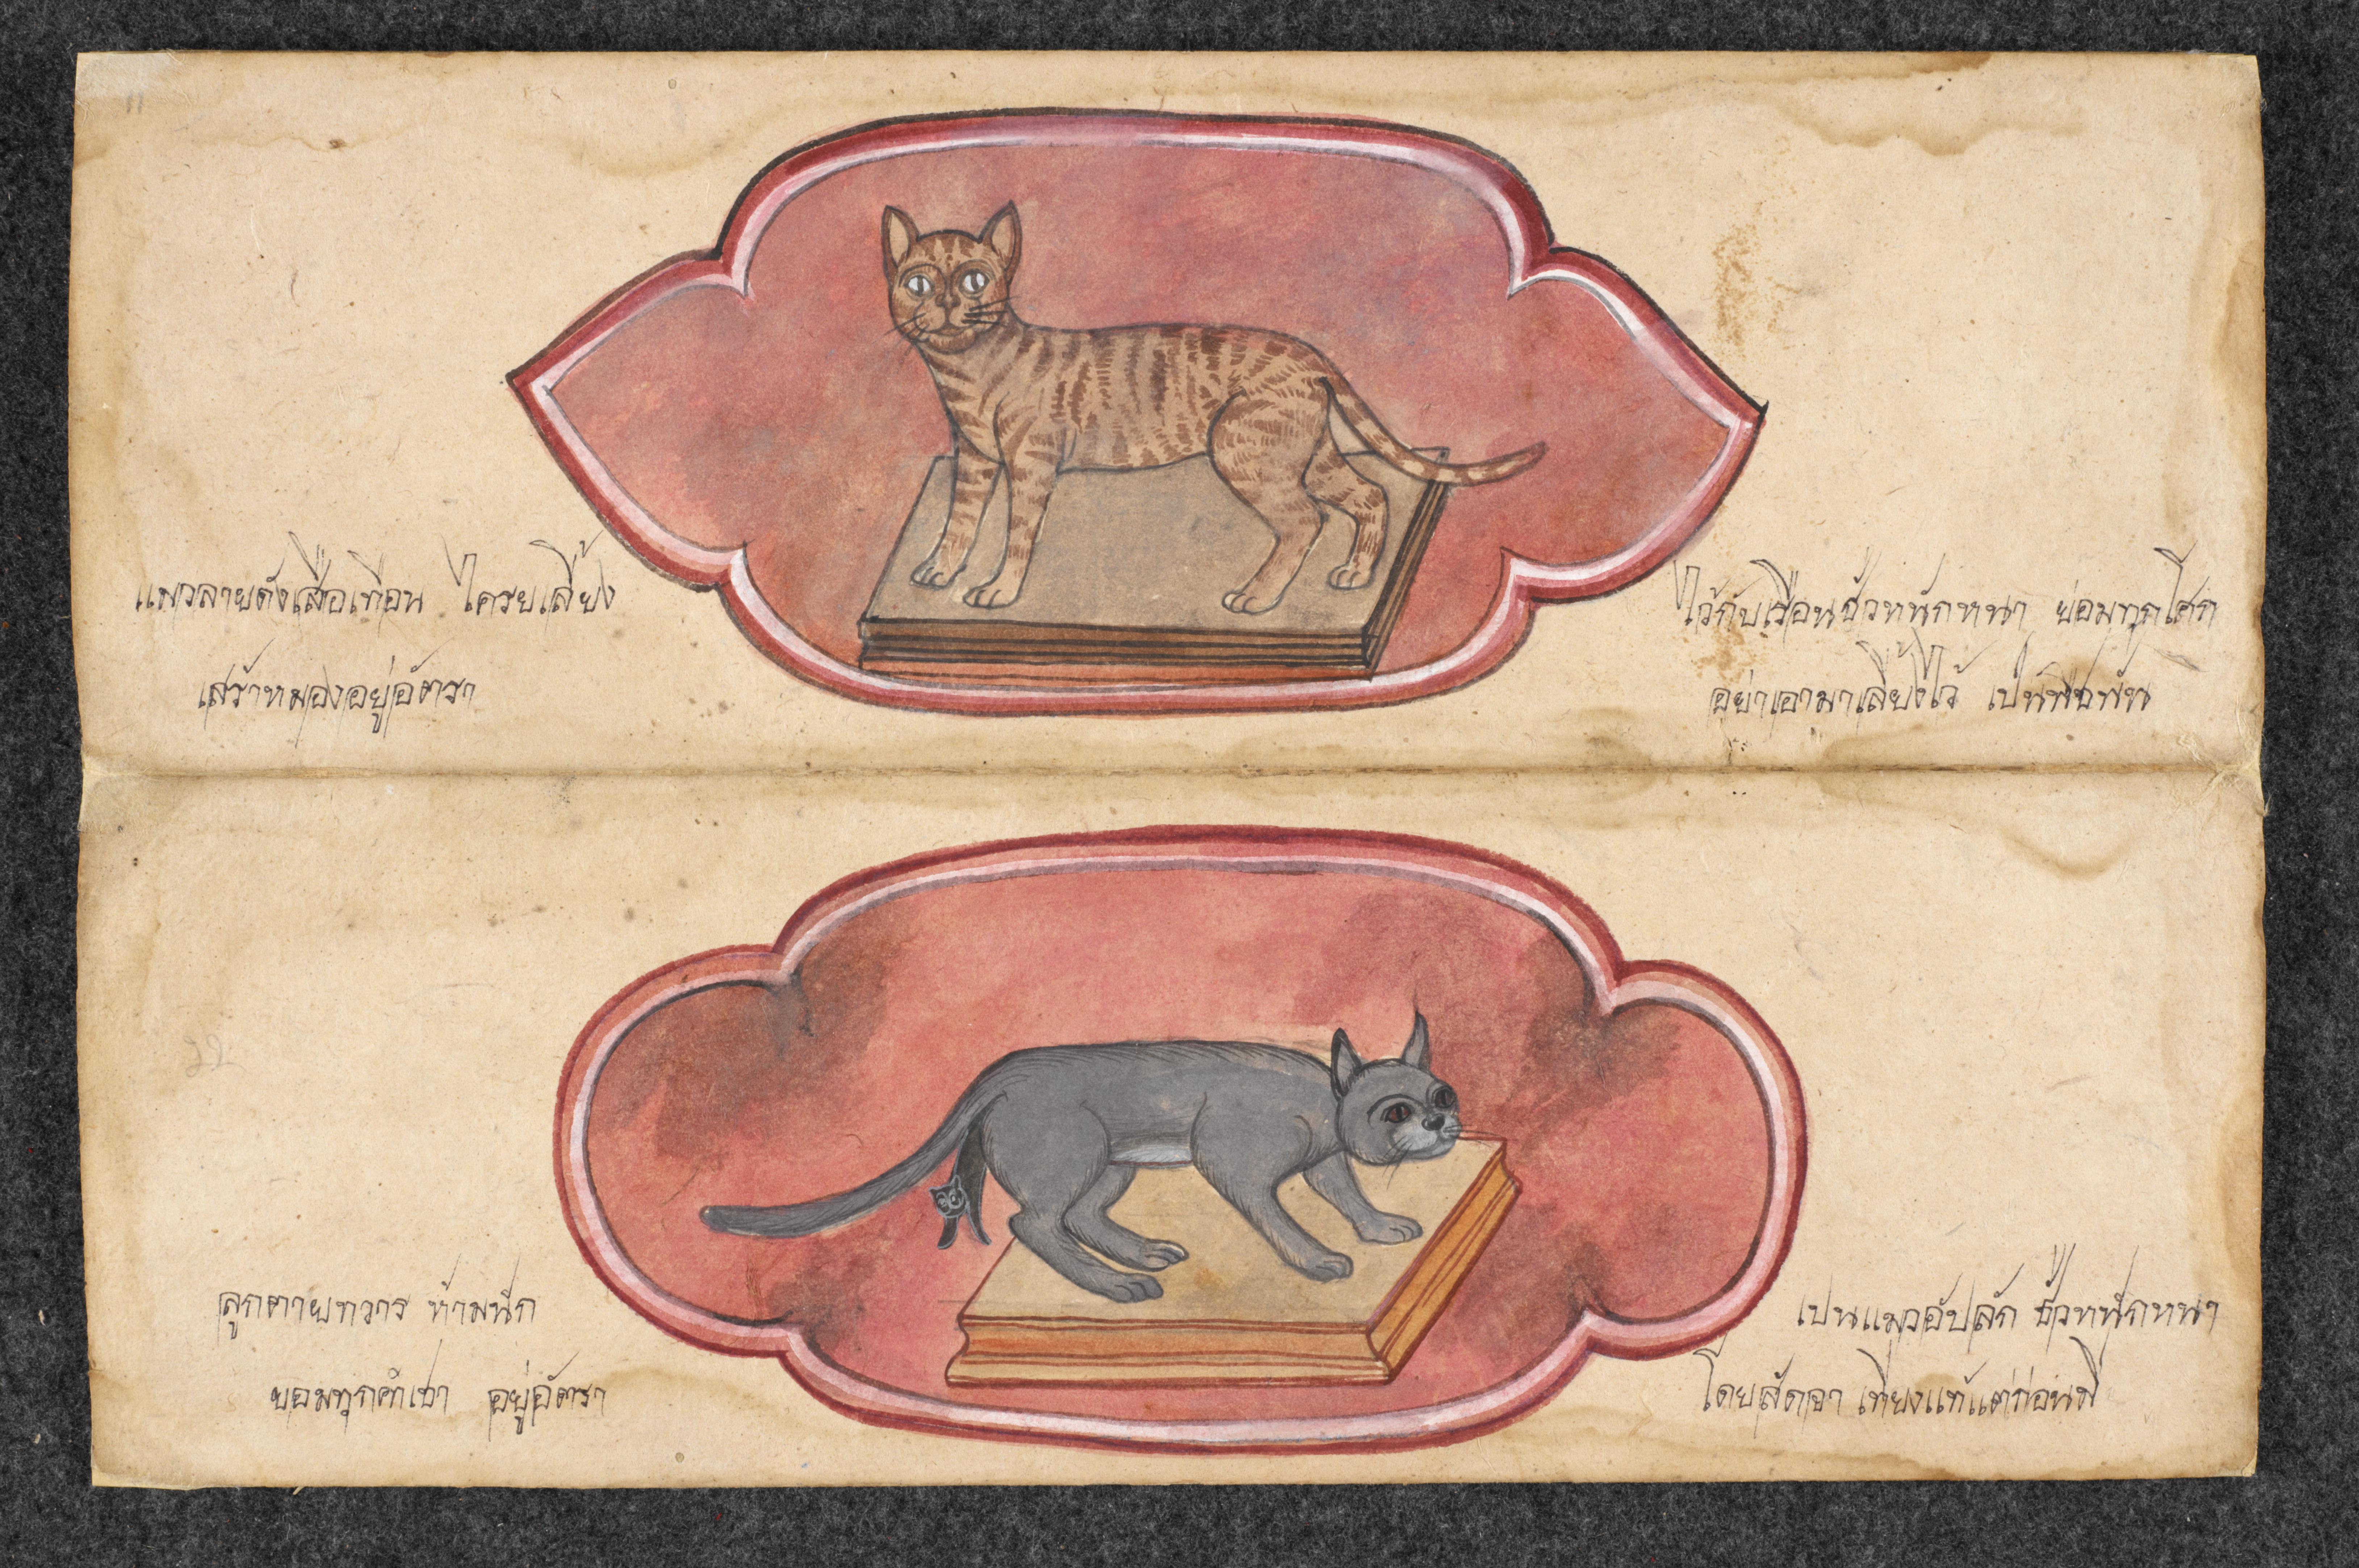 แมวลายดังเสือเทือน ไครยเลี้ยง
ไว้กับเรือนชั่วหนักหนา ย่อมทุกโศก
เสร้าหมองอยู่อัตรา
อย่าเอามาเลี้ยงไว้ เป็นพืชพัน
ลูกตายทวาร ห้ามนัก
เปนแมวอัปลัก ชั่วหนักหนา
ยอมทุกค่ำเชา อยู่อัตรา
โดยสัดจา เที่ยงแท้แต่ก่อนมี